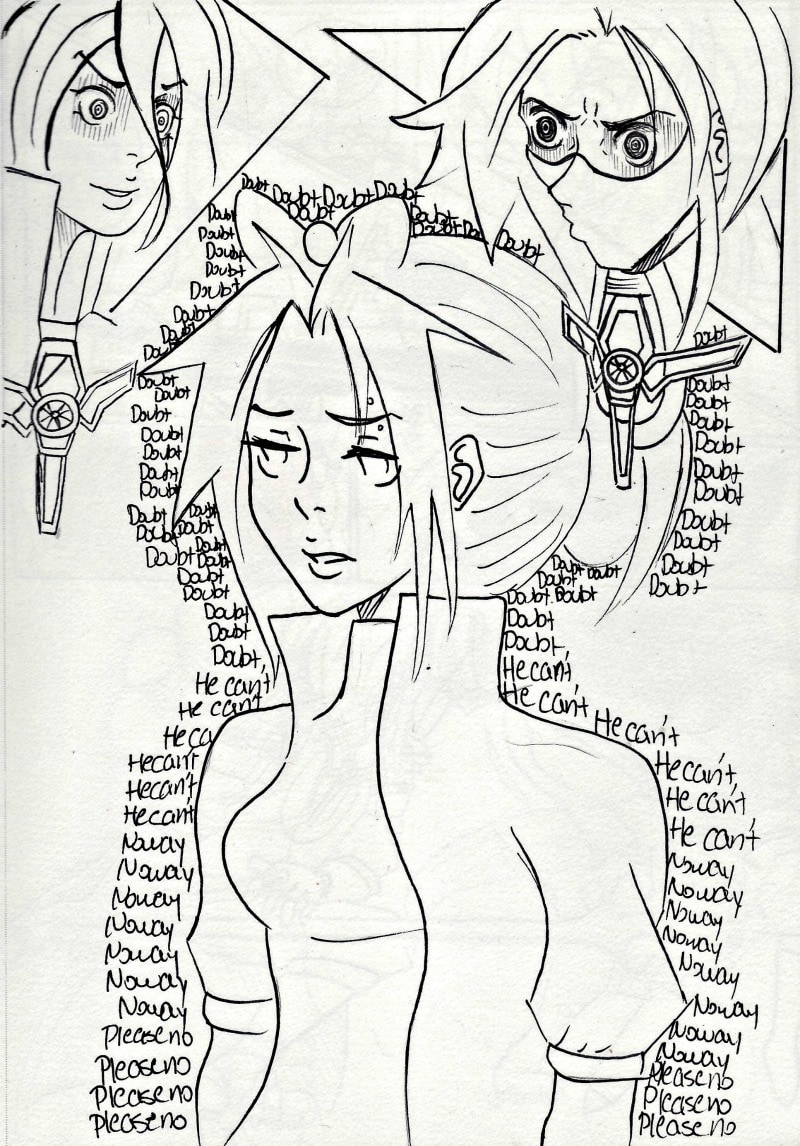 Doubt Doubt Doubt Doubt
Doubt Doubt
Doubt Dou Doubt
Doubt
Doubt
Doubt
Doubt
Doubt
Doubt
Doubt
Dou
Doubt
Doubt
Doubt
Doubt
Doubt
Doubt
Doubt
Doubt Doubt
Doubt Doubt
Doubt
Doubt Doubt
Doubt
Doubt
Doubt
Doubt
Doubt,
He can't
He can't
He ca
He can't
He can't
He can't
Noway
Noway
Noway
Noway
Noway
Noway
Noway
Please no
Please no
Please no
Please no
Doubt
Doubt
Doubt
Doubt
Doubt
Doubt
Doubt
Doubt
Doubt
Doubt
Doubt
Doubt Doubt
Doubt
Doubt. Doubt
Doubt
Doubt,
He can't
He can't
He can't
He can't,
He can't
He can't
Noway
Noway
Noway
Noway
Noway
Noway
Noway
Noway
Please no
Please no
Please no